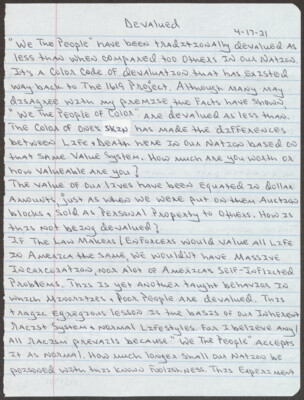 Devalued
4-17-21
"We The People" have been traditionally devalued as
less than when compared too others in our Nation.
Its a Color Code of devaluation that has existed
way back to The 1619 Project. Although many may
disagree with my premise the facts have shown
"We The People of Color" are devalued as less than.
The Color of ones SKIN has made the differences
between Life & Death here in our Nation based on
that same Value System. How much are you worth or
how valueable are you?
The value of our lives have been equated in dollar
amounts, just as when we were put on them Auction
blocks & Sold as Personal Property to others. How is
this not being devalued?
If The Law Makers/Enforcers would value all Life
in America the same, we wouldn't have Massive
Incarceration, nor alot of Americas Self-Inflicted
Problems. This is yet another taught behavior in
which Minorities & Poor People are devalued. This
tragic egregious lesson is the basis of our Inherent
Racist System & Normal Lifestyles. For I believe any/
all Racism prevails because "We The People" accepts
it as Normal. How much longer shall our Nation be
poisoned with this known foolishness. This Experiment